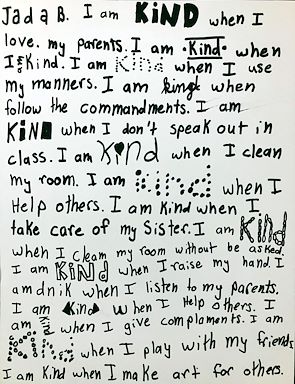 Jada B. I am KiND when I
love. my parents. I am Kind when
I am Kind. I am Kind when I use
my manners. I am kind when
follow the commandments. I am
KiND when I don't speak out in
class. I am Kind when I clean
my room. I am kind when I
Help others. I am Kind when I
take care of my Sister. I am Kind
when I clean my room without be asked.
I am KiND when I raise my hand. I
am dnik when I listen to my parents.
I am Kind when I Help others. I
am when I give complaments. I am
Kind when I play with my friends
I am Kind when I make art for others.